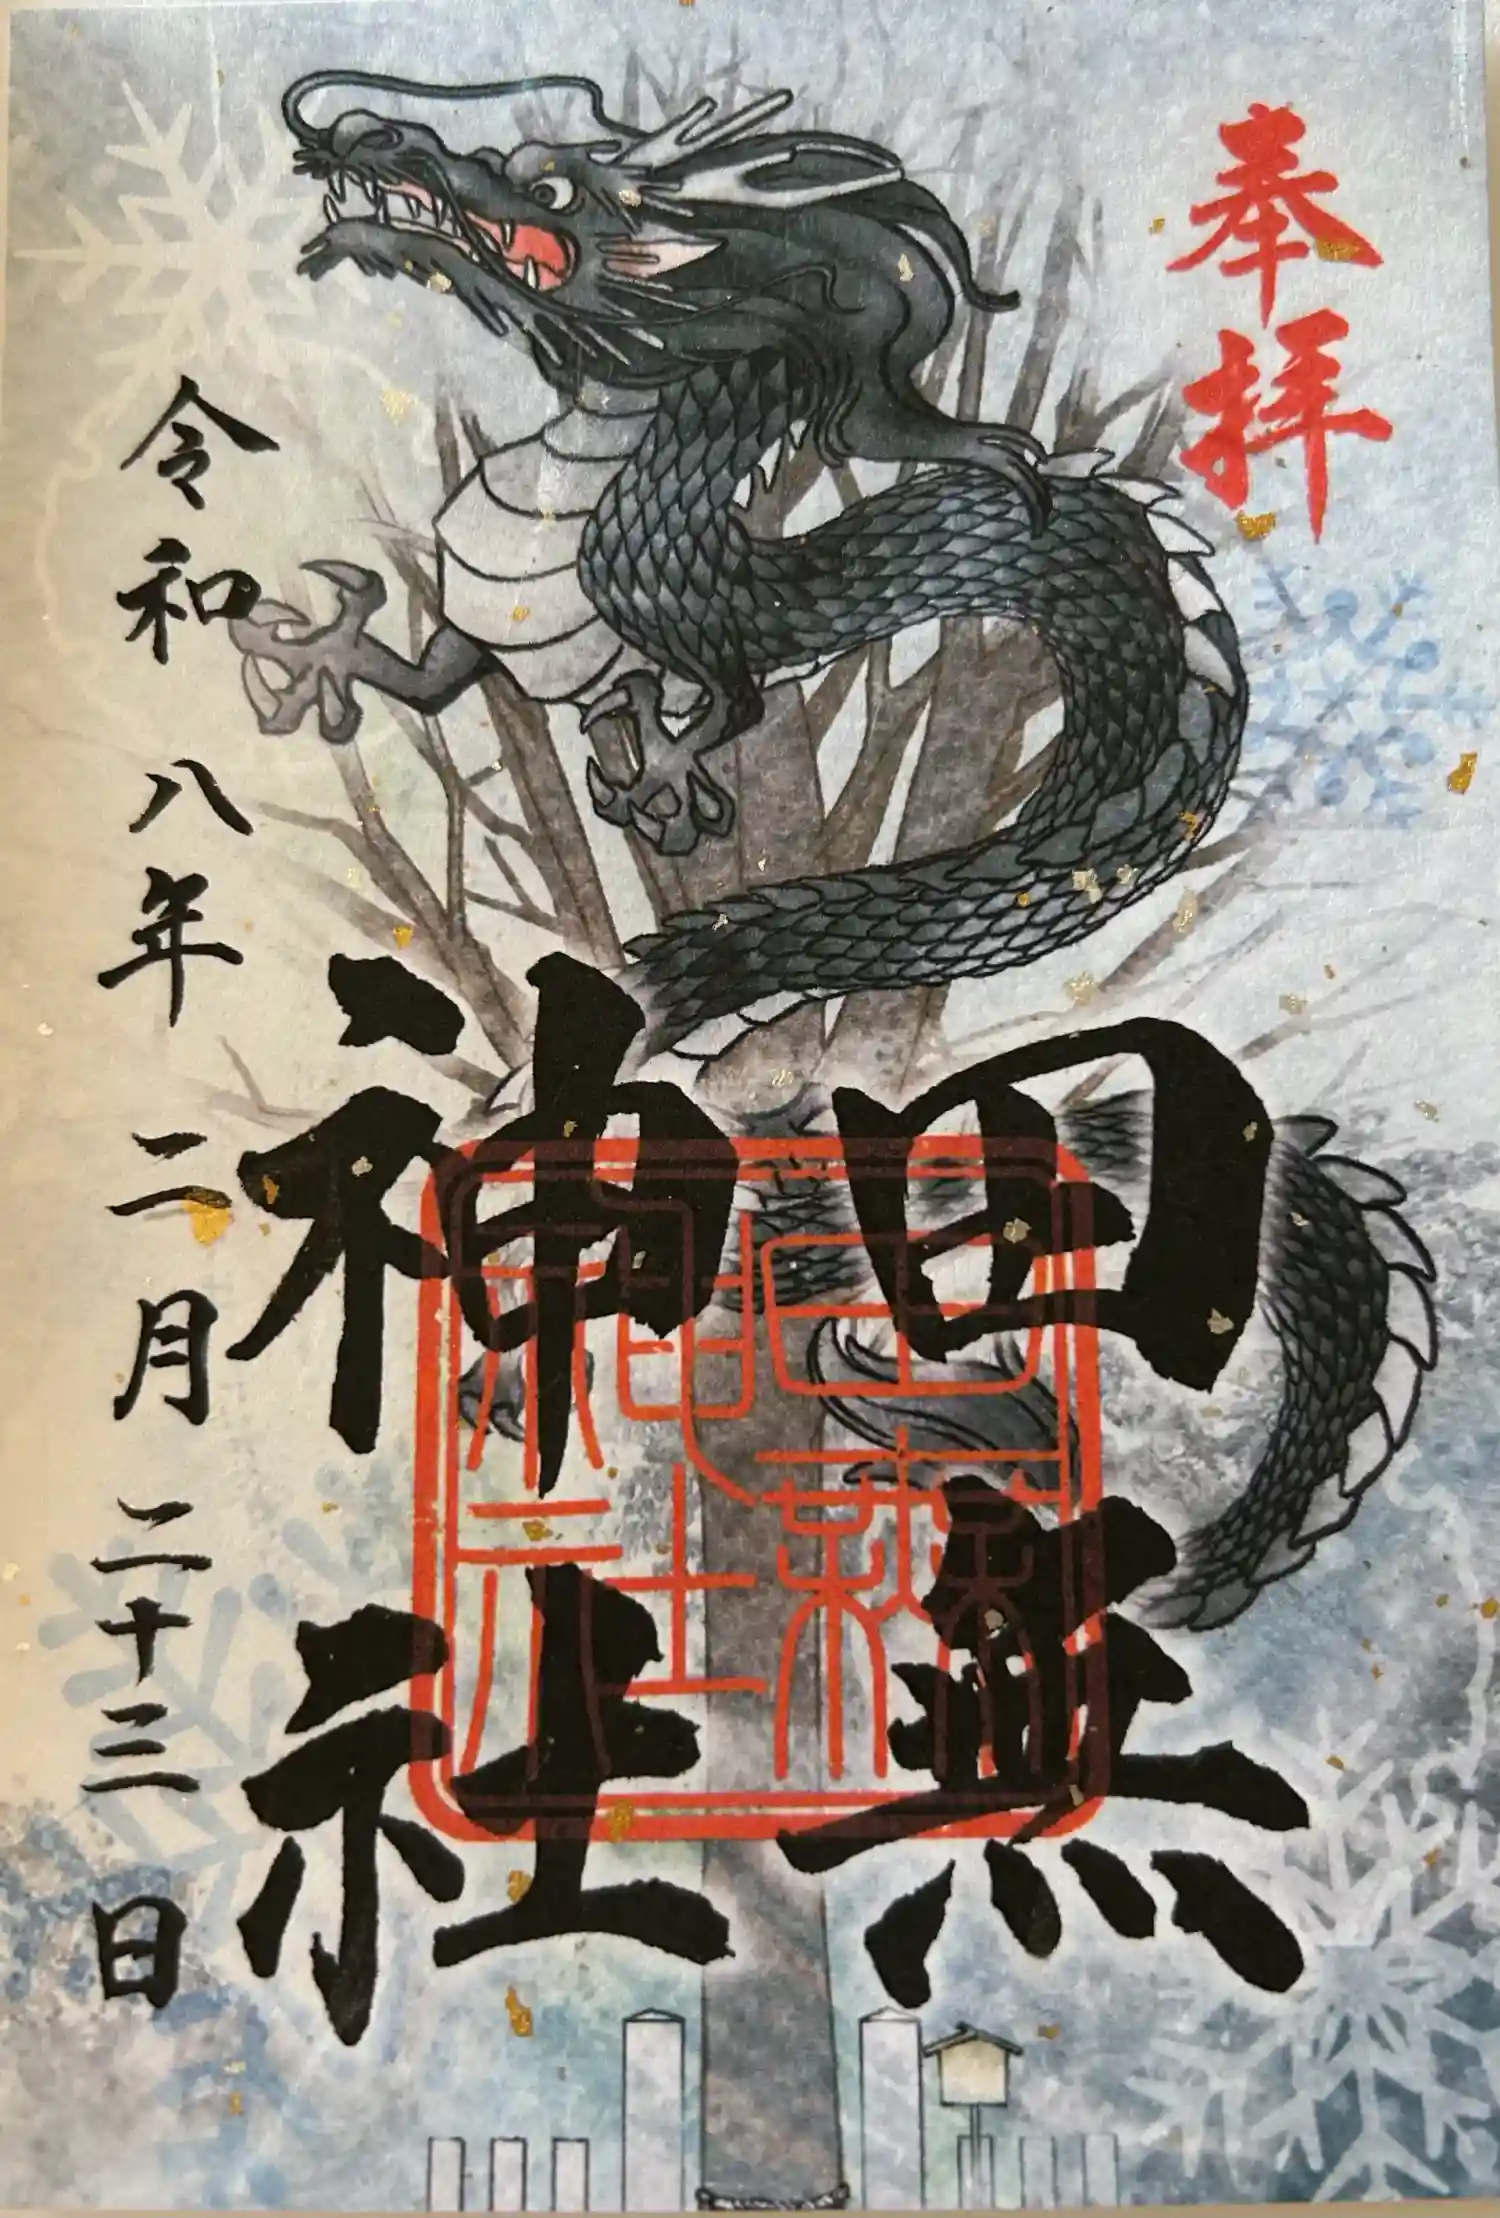 奉拝
田無
神社
令和八年二月二十三日
田無
神社